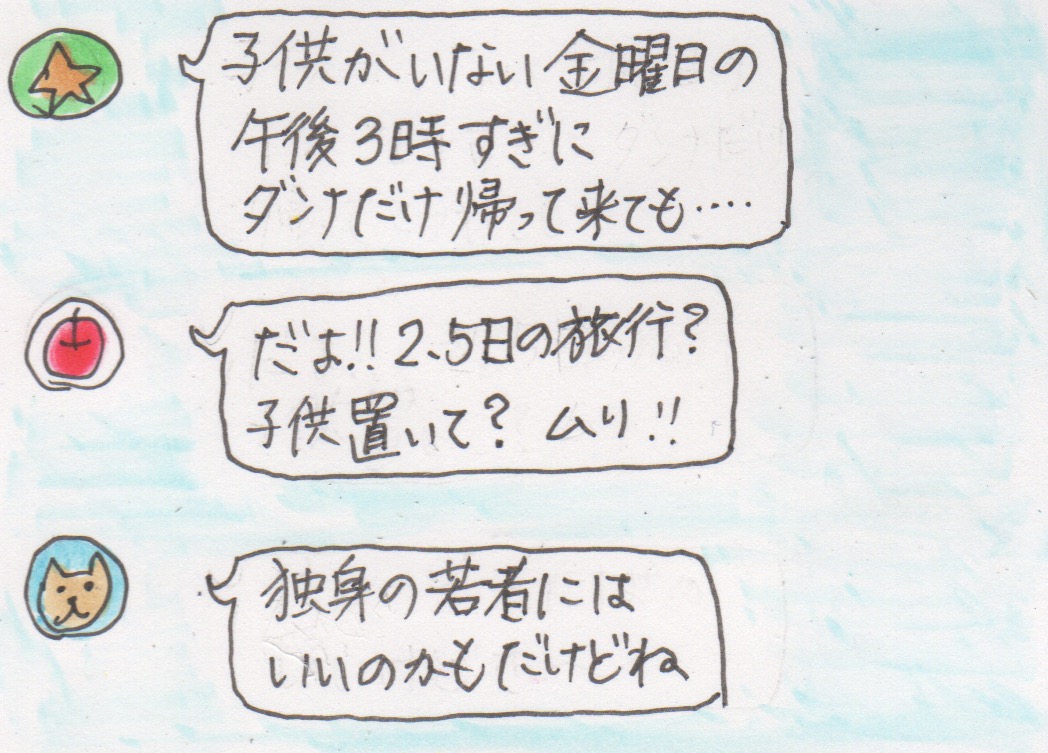 子供がいない金曜日の
午後3時すぎに
ダンナだけ帰って来ても・・・・
だよ!!2.5日の旅行?
子供置いて?ムリ!!
独身の若者には
いいのかもだけどね